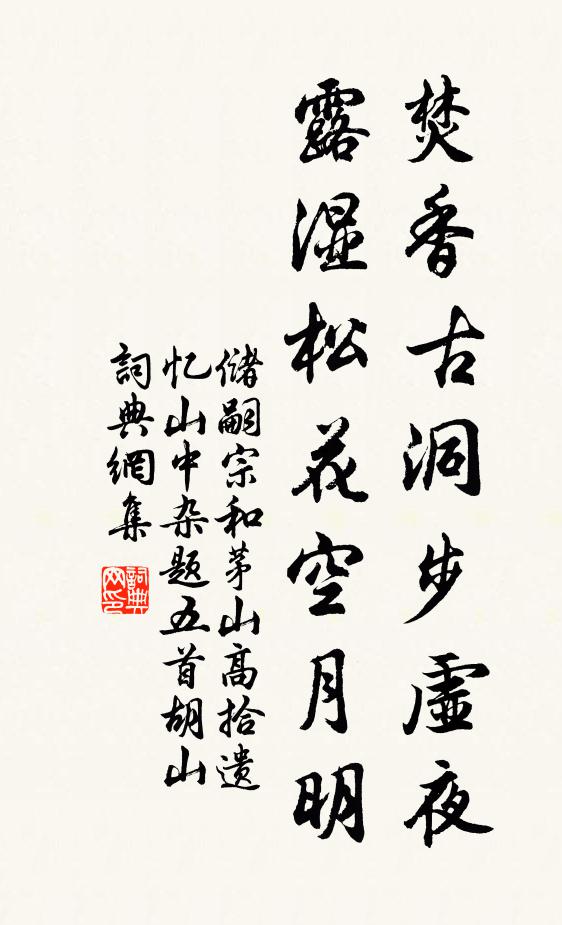 焚香古洞步虛夜
露湿松花空月明
儲嗣宗和茅山高拾遗
忆山中杂题五首胡山
詞典網集
詞典网印